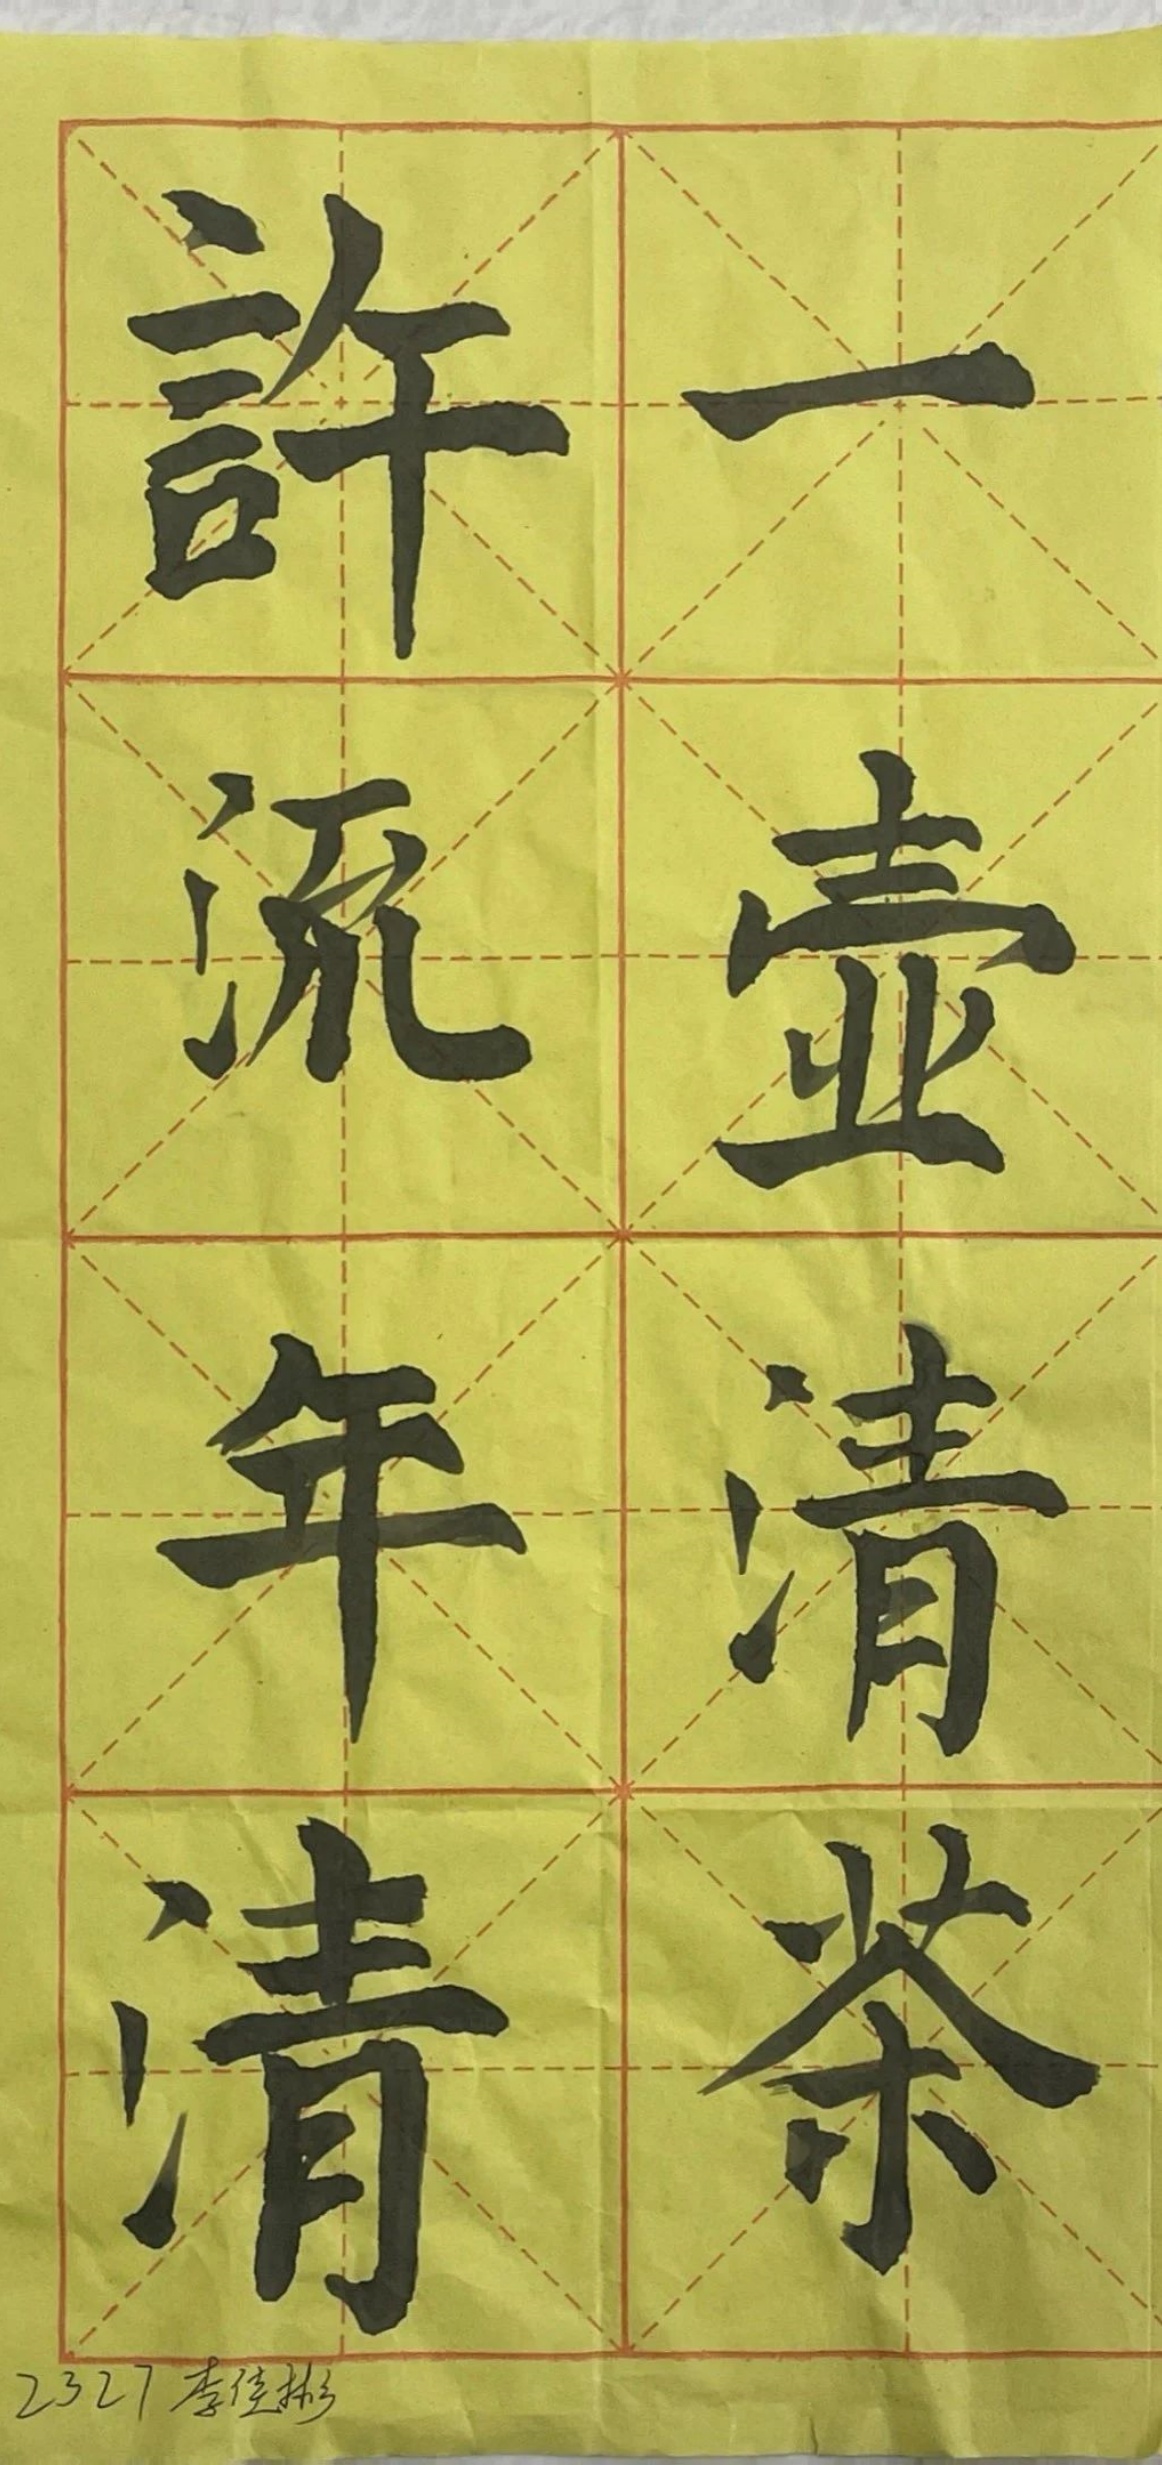 一壺清茶
許流年清
2327 李佳彬